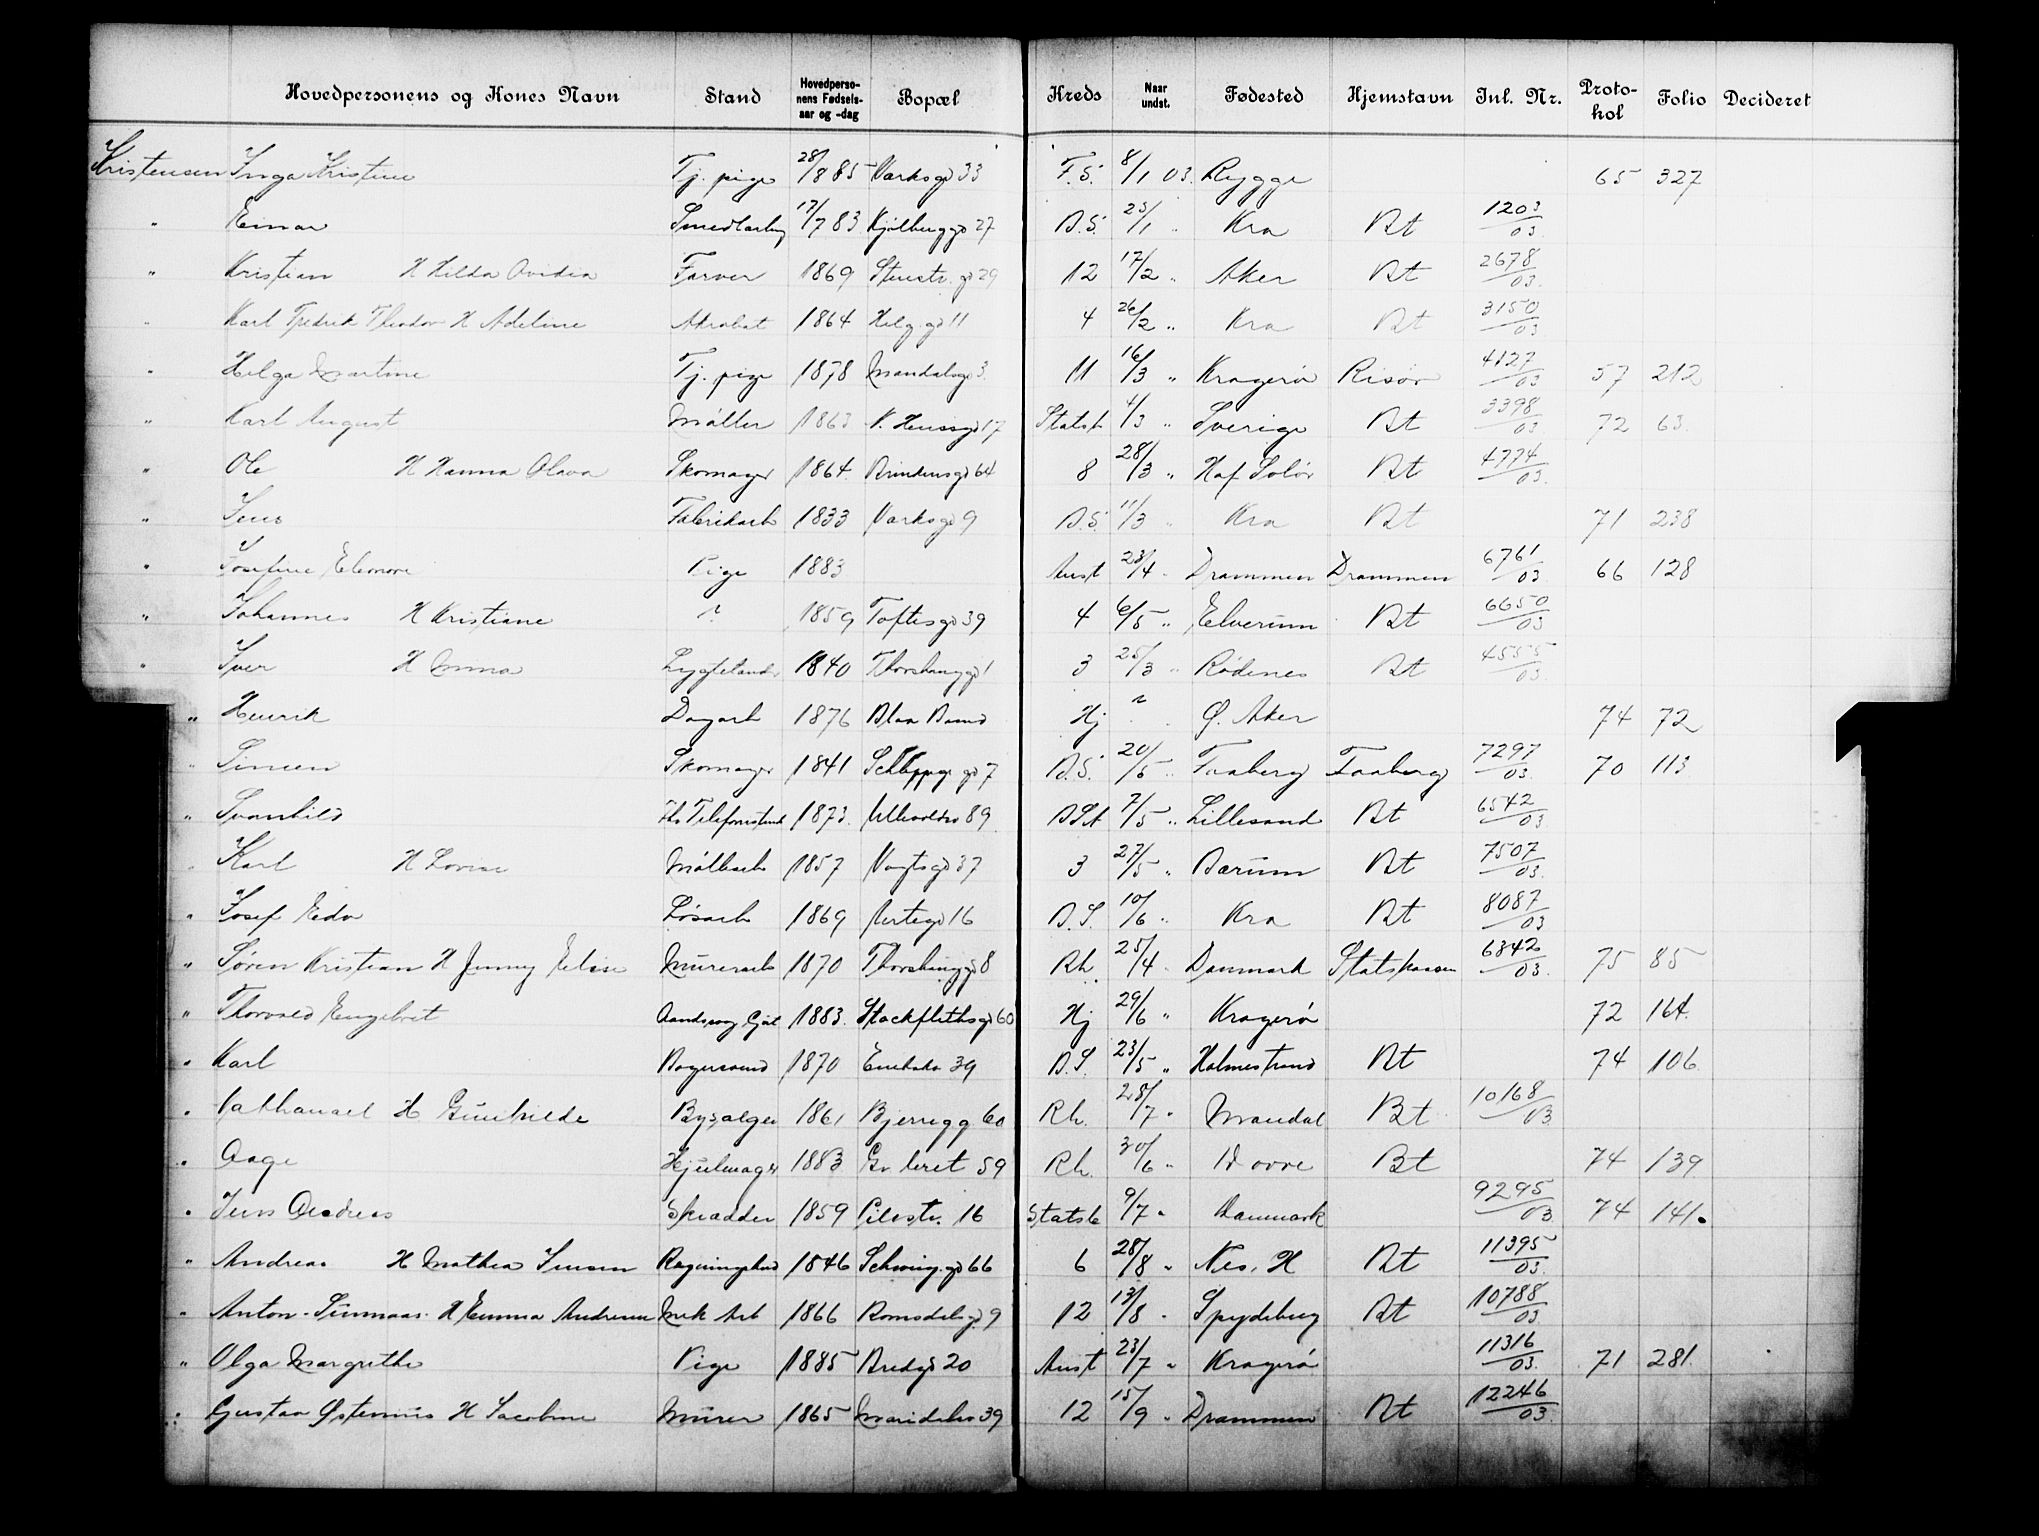 Hovedpersonens og Kones Navn Stand Hovedperso-nens Fødsels-aar og -dag Bopæl Kreds Naar undst. Fødested Hjemstavn Inl. Nr. Proto-kol Folio Decideret
Kristensen Inga Kristine Tj. pige 28/8 85 Varksgd 33 F.S. 8/1 03. Rygge 65 327
" Einar Smedlærling 17/7 83 Kjølberggd 27 B.S. 25/1 " Kra Bt 1203/03
" Kristian H Hilda Ovidia Farver 1869 Stenstr. gd 29 12 17/2 " Aker Bt 2678/03
" Karl Fredrik Theodor H Adeline Akrobat 1864 Helg. gd 11 4 26/2 " Kra Bt 3150/03
" Helga Martine Tj. pige 1878 Mandalsgd 3 11 16/3 " Kragerø Risør 4127/03 57 212
" Karl August Møller 1863 17 Statsb 4/3 " Sverige Bt 3398/03 72 63
" Ole H Hanna Olava Skomager 1864 64 8 28/3 " Hof Solør Bt 4774/03
" Jens Fabrikarb 1833 Varksgd 9 B.S. 11/3 " Kra Bt 71 238
" Josefine Eleonore Pige 1883 Anst 23/4 " Drammen Drammen 6761/03 66 128
" Johannes H Kristiane ? 1859 Toftesgd 39 4 6/5 " Elverum Bt 6650/03
" Iver H Anna Lygtetænder 1840 Thorshauggd 1 3 25/3 " Rødenes Bt 4555/03
" Henrik Dagarb 1876 Blaa Baand Hj " Ø. Aker 74 72
" Simen Skomager 1841 Schleppegr gd 7 B.S. 20/5 " Faaberg Faaberg 7297/03 70 113
" Svanhild 1873 Ullevoldsv 89 7/5 " Lillesand Bt 6542/03
" Karl H Lovise Møllearb 1857 Vogtsgd 37 3 27/5 " Bærum Bt 7507/03
" Josef Edv Løsarb 1869 16 B.S. 10/6 " Kra Bt 8087/03
" Søren Kristian H Jenny Elise Murerarb 1870 Thorshauggd 8 Rh. 25/4 " Danmark Statskassen 6342/03 75 85
" Thorvald Engebret 1883 Stockflethsgd 60 Hj 29/6 " Kragerø 72 164
" Karl Bagersvend 1870 Enebakv 39 B.S. 23/5 " Holmestrand Bt 74 106
" Nathanael H Gunhilde Bysælger 1861 Bjerregg 60 Rh. 28/7 " Mandal Bt 10168/03
" Aage Hjulmager 1883 59 Rh. 30/6 " Dovre Bt 74 139
" Jens Andreas Skrædder 1859 Pilestr. 16 Statsb 9/7 " Danmark 9295/03 74 141
" Andreas H Mathea Jensen 1846 Schwing. gd 66 6 28/8 " Nes, H Bt 11395/03
" Anton H Emma Andresen Mek Arb 1866 Romsdalsgd 9 12 13/8 " Spydeberg Bt 10788/03
" Olga Margrethe Pige 1885 Bredgd 20 Anst 23/7 " Kragerø 11316/03 71 281
" Gustav H Jacobine Murer 1865 Maridalsv 39 12 15/9 " Drammen Bt 12246/03